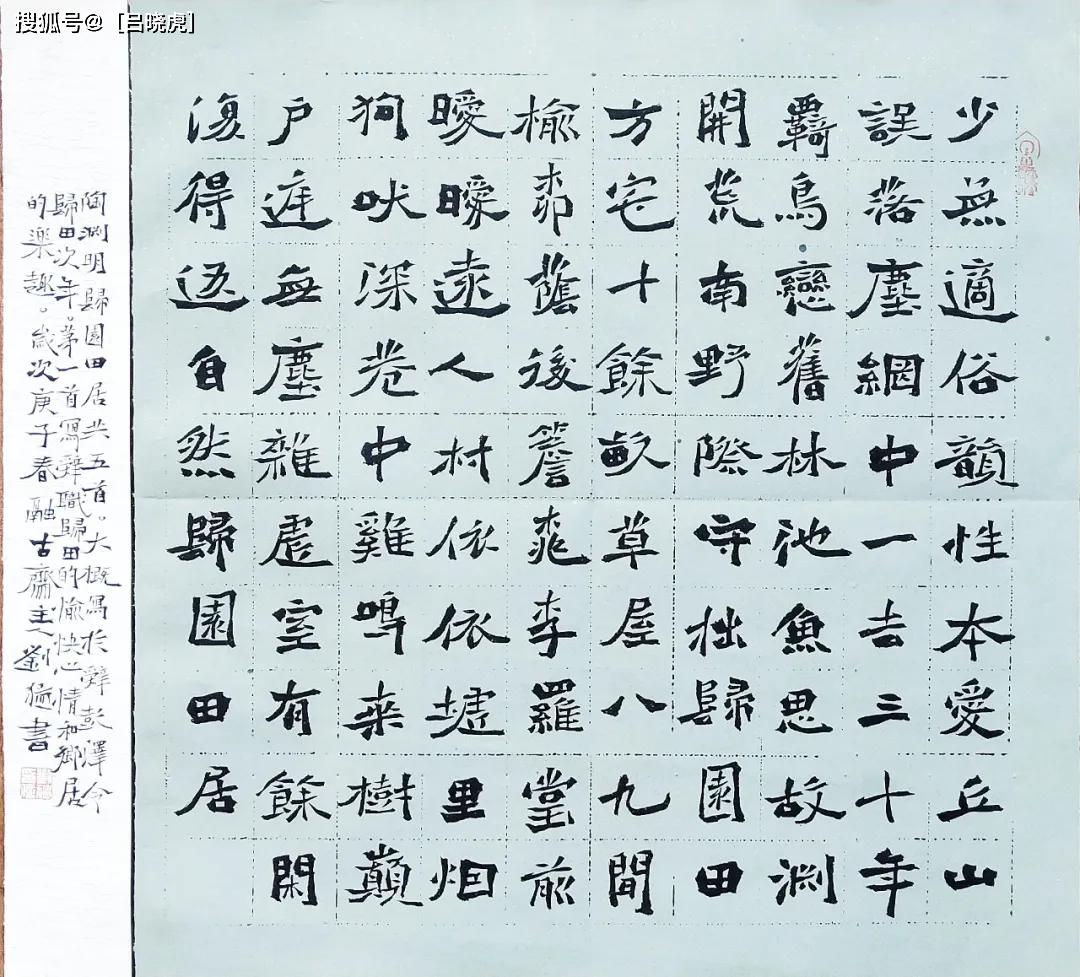 搜狐号@[吕晓虎]
少無適俗韻性本愛丘山
誤落塵網中一去三十年
羈鳥戀舊林池魚思故渊
開荒南野際守拙歸園田
方宅十餘畝草屋八九間
榆柳蔭後簷桃李羅堂前
曖曖遠人村依依墟里烟
狗吠深巷中雞鳴桑樹巔
户庭無塵雜虛室有餘閑
復得返自然歸園田居
陶渊明歸園田居共五首。大概寫於辭彭澤令
歸田次年。第一首寫辭職歸田的愉快心情和鄉居
的樂趣。歲次庚子春融古齋主人劉書